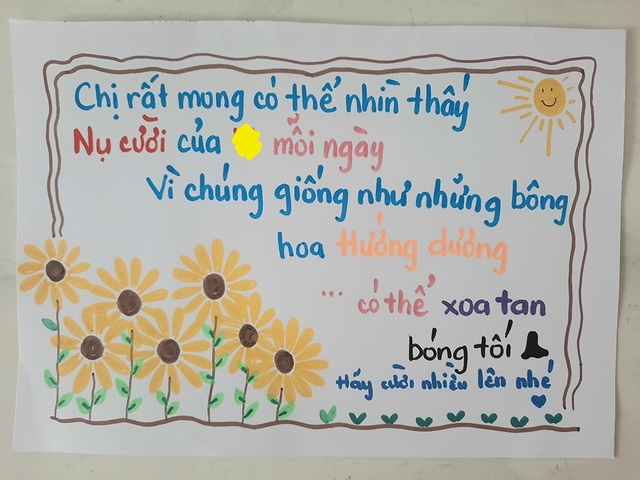 Chị rất mong có thể nhìn thấy
Nụ cười của mỗi ngày
Vì chúng giống như những bông
hoa Hướng dương
... có thể xoa tan
bóng tối
Hãy cười nhiều lên nhé